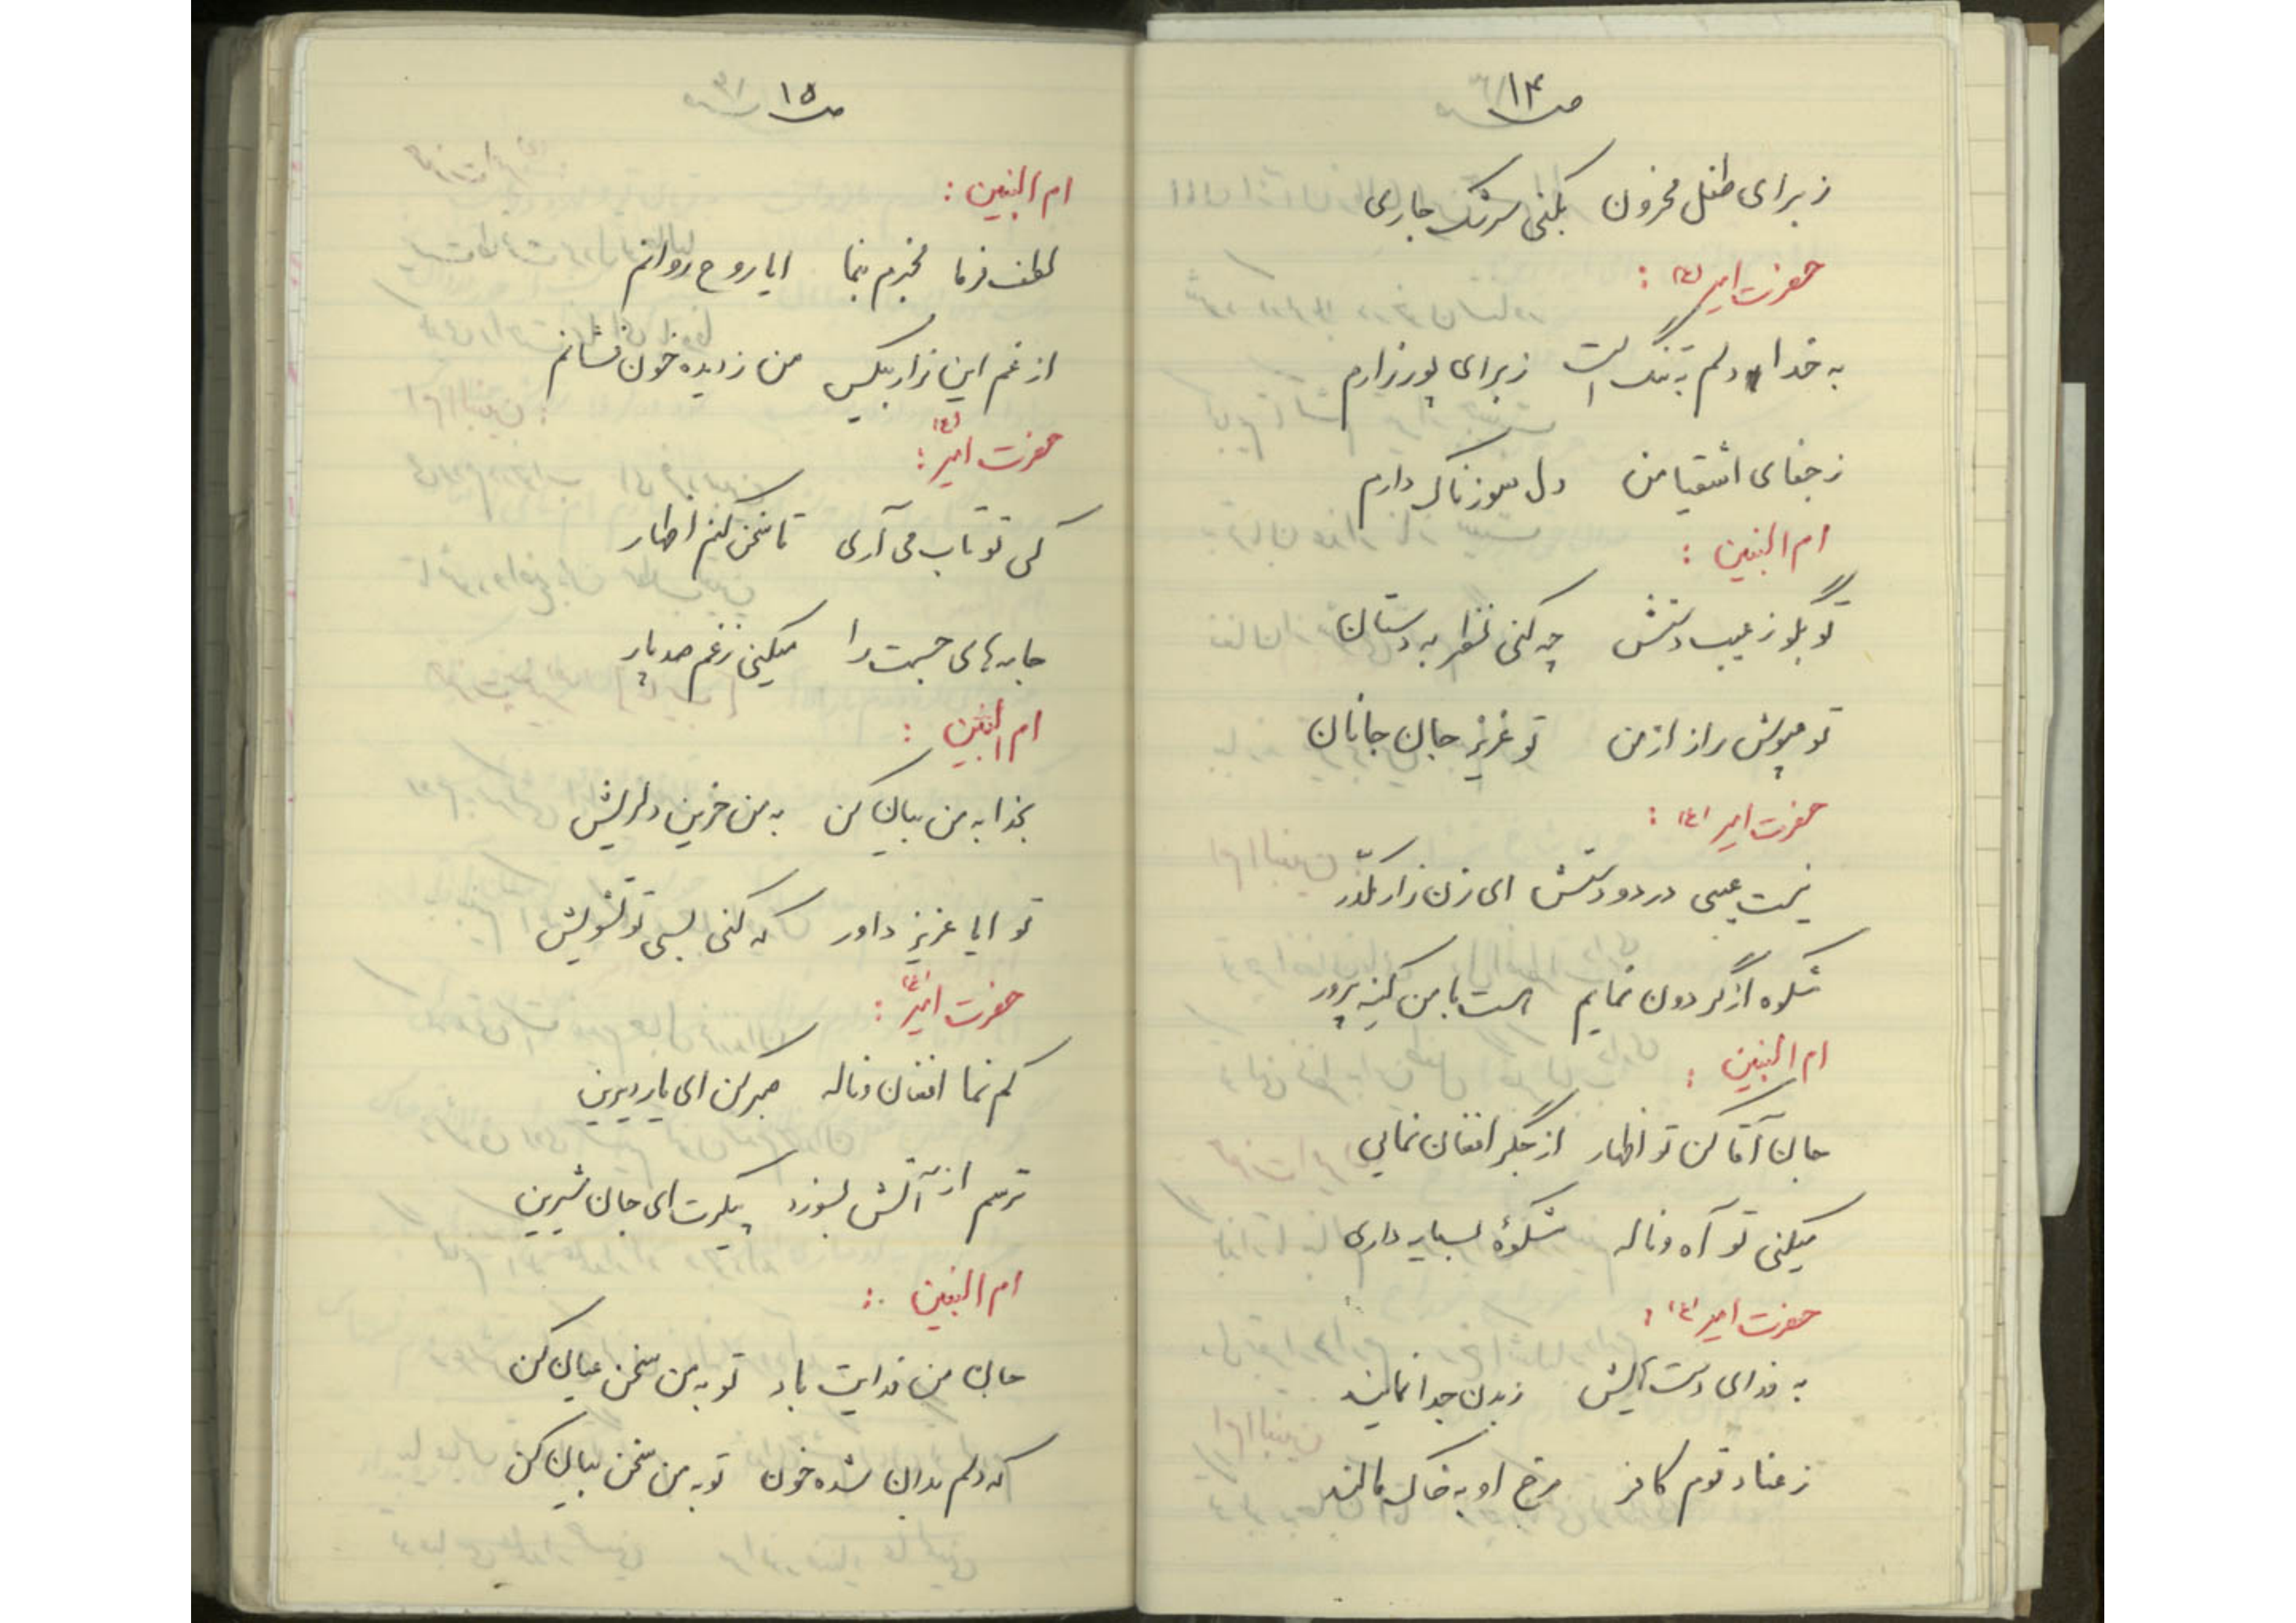 ص ۱۴
ز برای طفل محزون بکنی سرشک جاری
حضرت امیر (ع) :
به خدا دلم به تنگ است ز برای پور زارم
ز جفای اشقیا من دل سوزناک دارم
ام البنین :
تو بگو ز عیب دستش چه کنی نظر به دستان
تو مپوش راز از من تو عزیز جان جانان
حضرت امیر (ع) :
نیست عیبی در دو دستش ای زن زار مکدّر
شکوه از گردون نمایم هست با من کینه پرور
ام البنین :
جان آقا کن تو اظهار از جگر افغان نمایی
میکنی تو آه و ناله شکوهٔ بسیار داری
حضرت امیر (ع) :
به فدای دست هایش ز بدن جدا نمایند
ز عناد قوم کافر رخ او به خاک مالند
ص ۱۵
ام البنین :
لطف فرما مخبرم نما ایا روح روانم
از غم این زار بیکس من ز دیده خون فشانم
حضرت امیر (ع) :
کی تو تاب می آری تا سخن کنم اظهار
جامه های جسمت را میکنی ز غم صد پار
ام البنین :
بخدا به من بیان کن به من حزین دلریش
تو ایا عزیز داور که کنی بسی تو تشویش
حضرت امیر (ع) :
کم نما افغان و ناله صبر کن ای یار دیرین
ترسم از آتش بسوزد پیکرت ای جان شیرین
ام البنین :
جان من فدایت باد تو به من سخن عیان کن
که دلم بدان شده خون تو به من سخن بیان کن